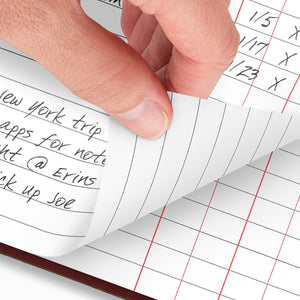 1/5 X
1/17 X
1/23 X
New York trip
apps for note
@ Erins
ick up Joe